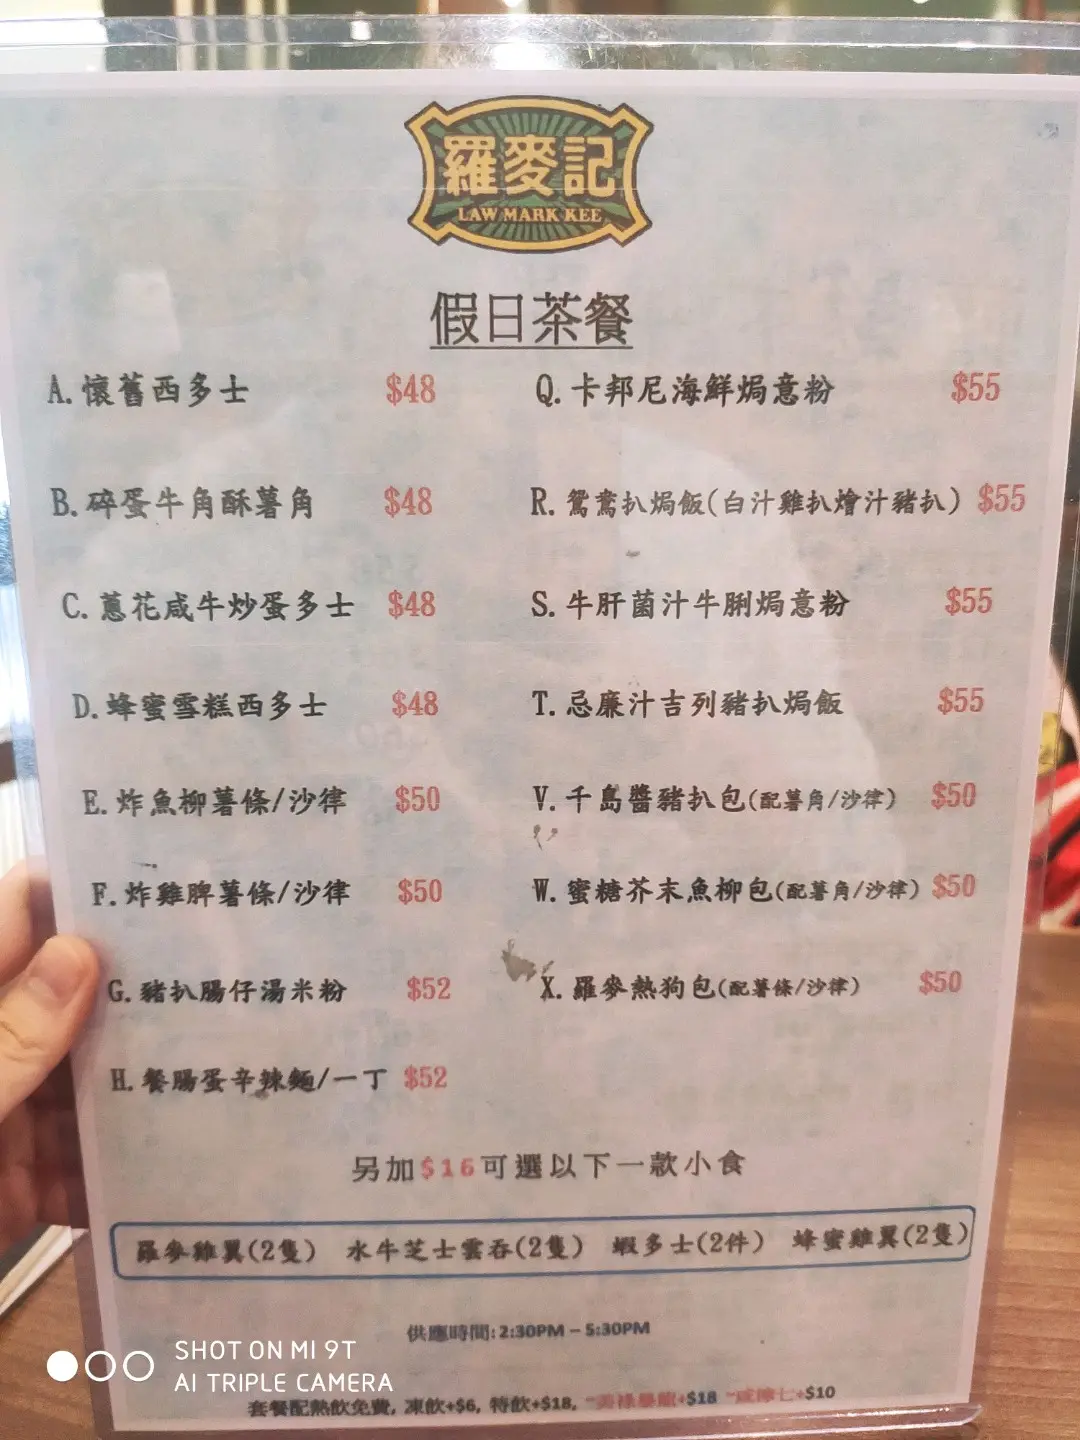 羅麥記
LAW MARK KEE
假日茶餐
A.懷舊西多士 $48
Q.卡邦尼海鮮焗意粉 $55
B.碎蛋牛角酥薯角 $48
R.鴛鴦扒焗飯(白汁雞扒燴汁豬扒) $55
C.蔥花咸牛炒蛋多士 $48
S.牛肝菌汁牛脷焗意粉 $55
D.蜂蜜雪糕西多士 $48
T.忌廉汁吉列豬扒焗飯 $55
E.炸魚柳薯條/沙律 $50
V.千島醬豬扒包(配薯角/沙律) $50
F.炸雞脾薯條/沙律 $50
W.蜜糖芥末魚柳包(配薯角/沙律) $50
G.豬扒腸仔湯米粉 $52
X.羅麥熱狗包(配薯條/沙律) $50
H.餐腸蛋辛辣麵/一丁 $52
另加$16可選以下一款小食
羅麥雞翼(2隻) 水牛芝士雲吞(2隻) 蝦多士(2件) 蜂蜜雞翼(2隻)
供應時間:2:30PM – 5:30PM
套餐配熱飲免費, 凍飲+$6, 特飲+$18, +$18 +$10
SHOT ON MI 9T
AI TRIPLE CAMERA